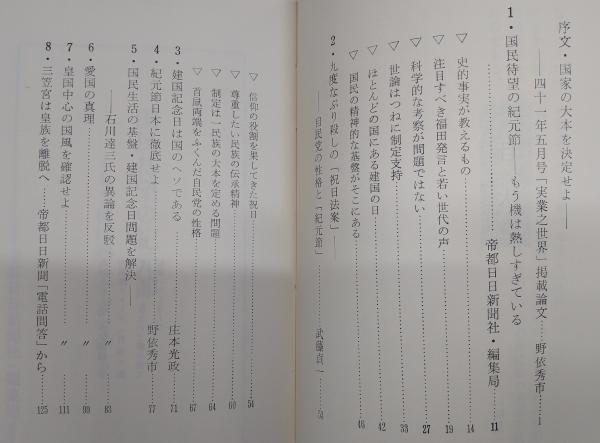 序文・国家の大本を決定せよ――
――四十一年五月号「実業之世界」掲載論文……野依秀市…1
1・国民待望の紀元節――もう機は熱しすぎている
……帝都日日新聞社・編集局 11
▽ 史的事実が教えるもの……14
▽ 注目すべき福田発言と若い世代の声……19
▽ 科学的な考察が問題ではない……27
▽ 世論はつねに制定支持……33
▽ ほとんどの国にある建国の日……42
▽ 国民の精神的な基盤がそこにある……46
2・九度なぶり殺しの「祝日法案」――
――自民党の性格と「紀元節」……武藤貞一…53
▽ 信仰の役割を果してきた祝日……54
▽ 尊重したい民族の伝承精神……60
▽ 制定は一民族の大本を定める問題……64
▽ 首鼠両端をふくんだ自民党の性格……67
3・建国記念日は国のヘソである……庄本光政 71
4・紀元節日本に徹底せよ……野依秀市 77
5・国民生活の基盤・建国記念日問題を解決――
――石川達三氏の異論を反駁……〃……83
6・愛国の真理……〃……99
7・皇国中心の国風を確認せよ……〃……111
8・三笠宮は皇族を離脱へ……帝都日日新聞「電話問答」から…125